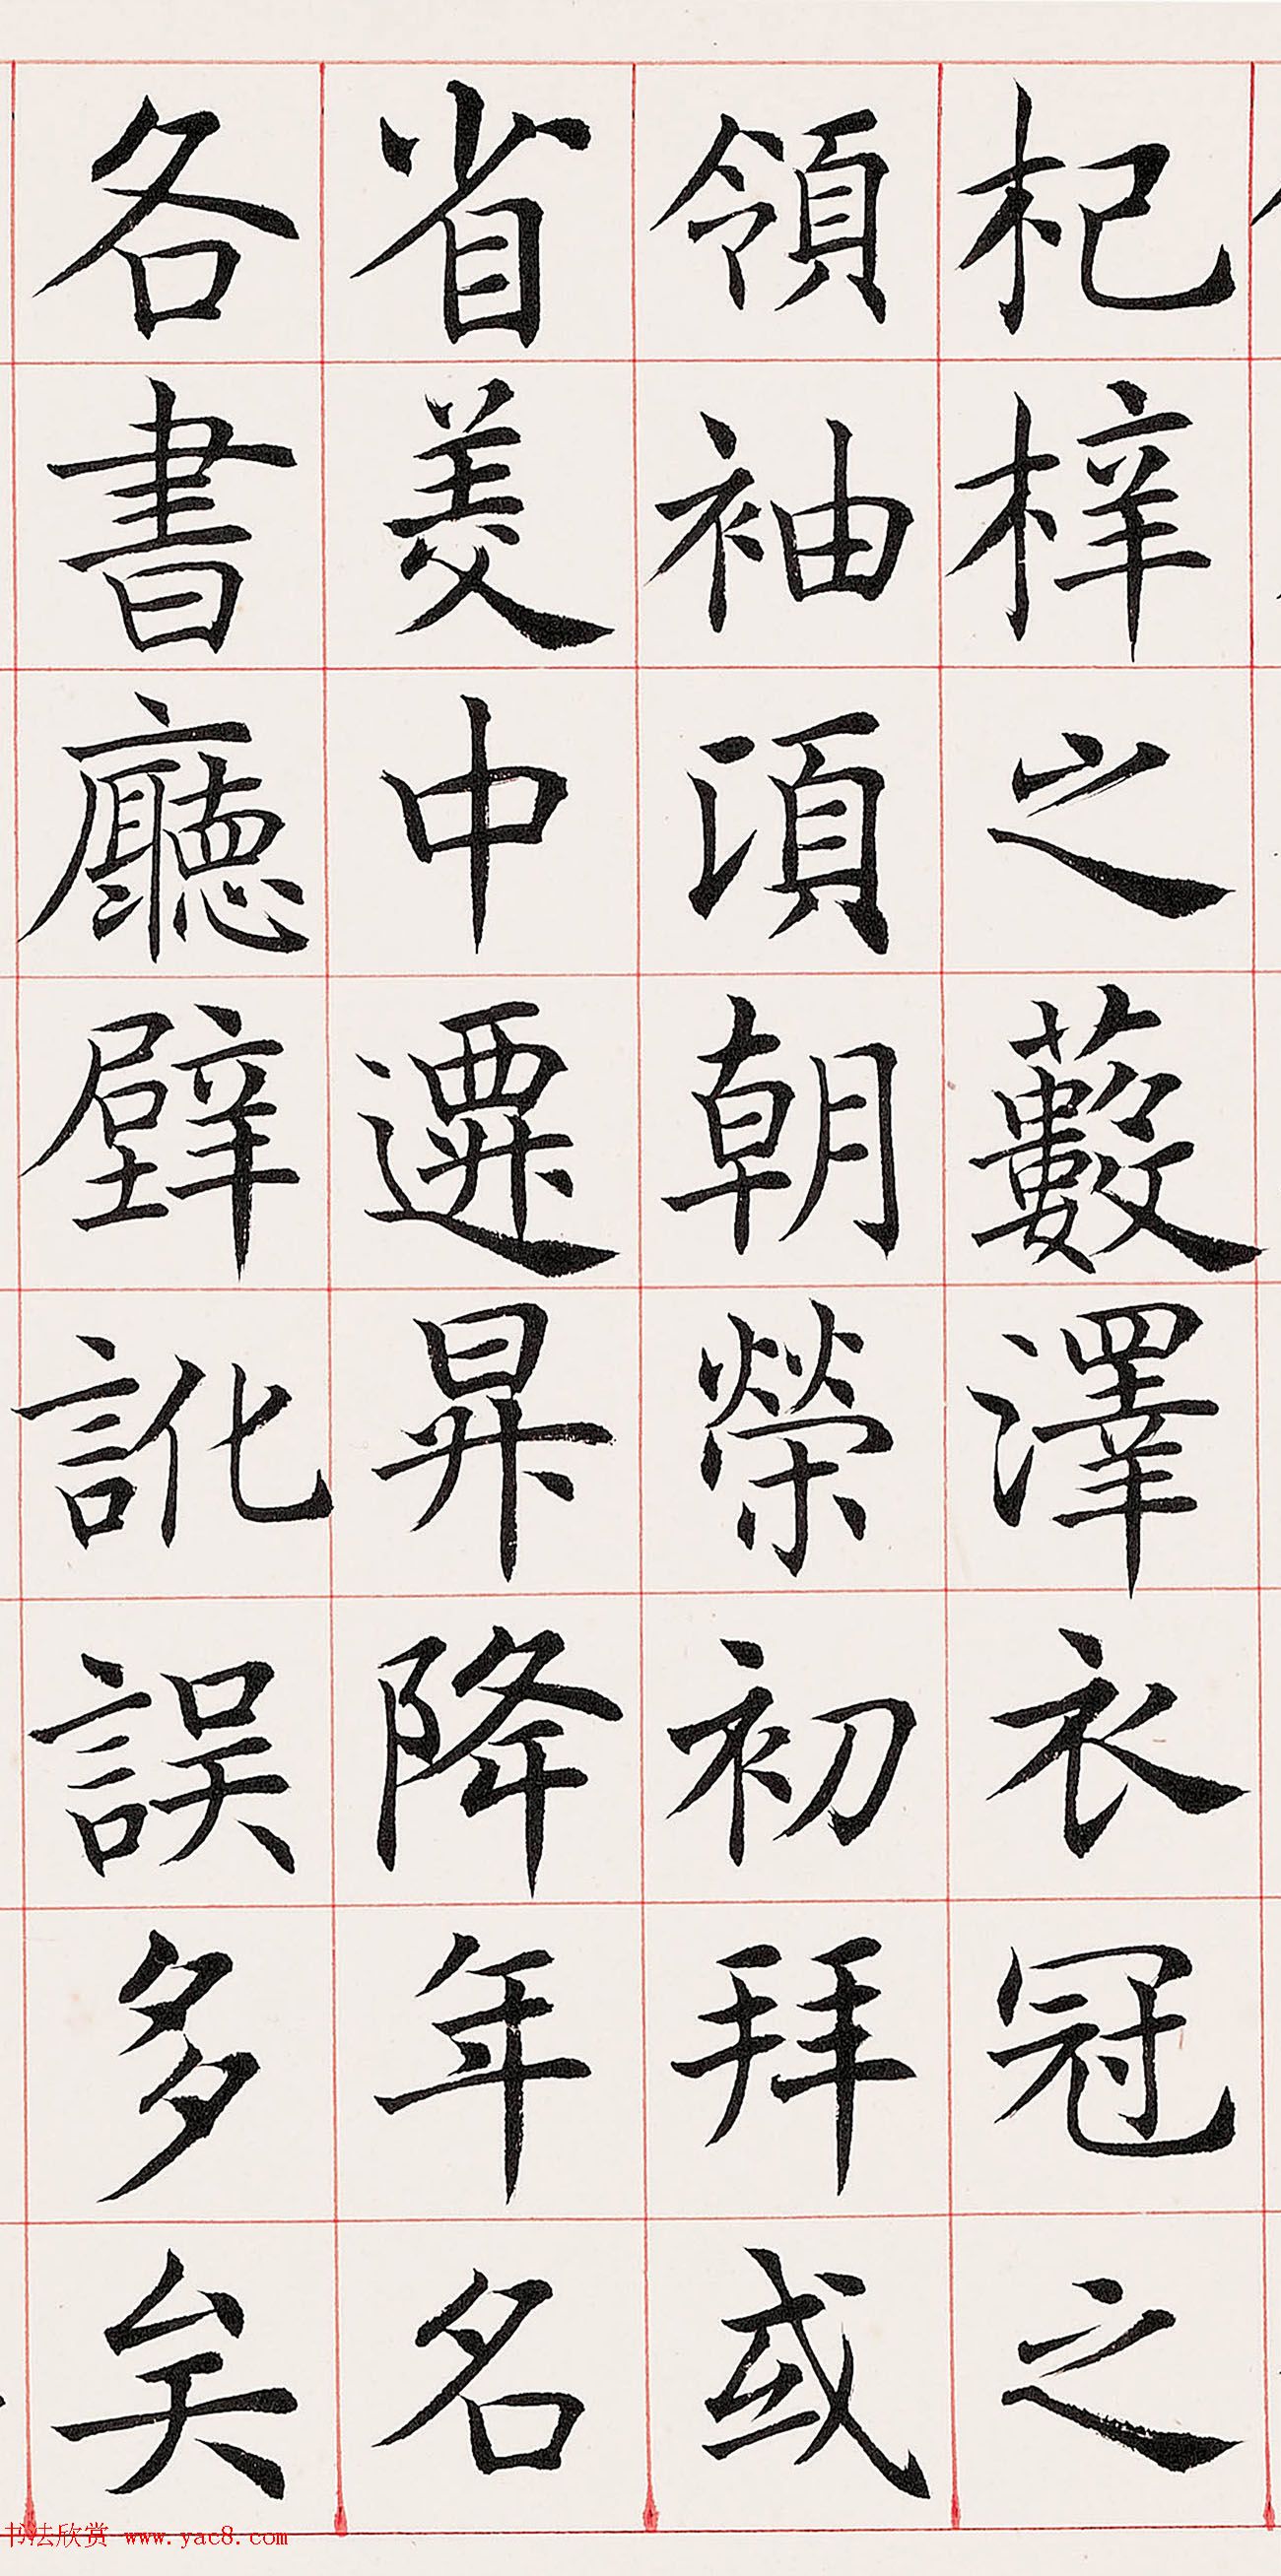 杞梓之藪澤衣冠之
領袖頃朝榮初拜或
省美中遷昇降年名
各書廳壁訛誤多矣
书法欣赏 www.yac8.com